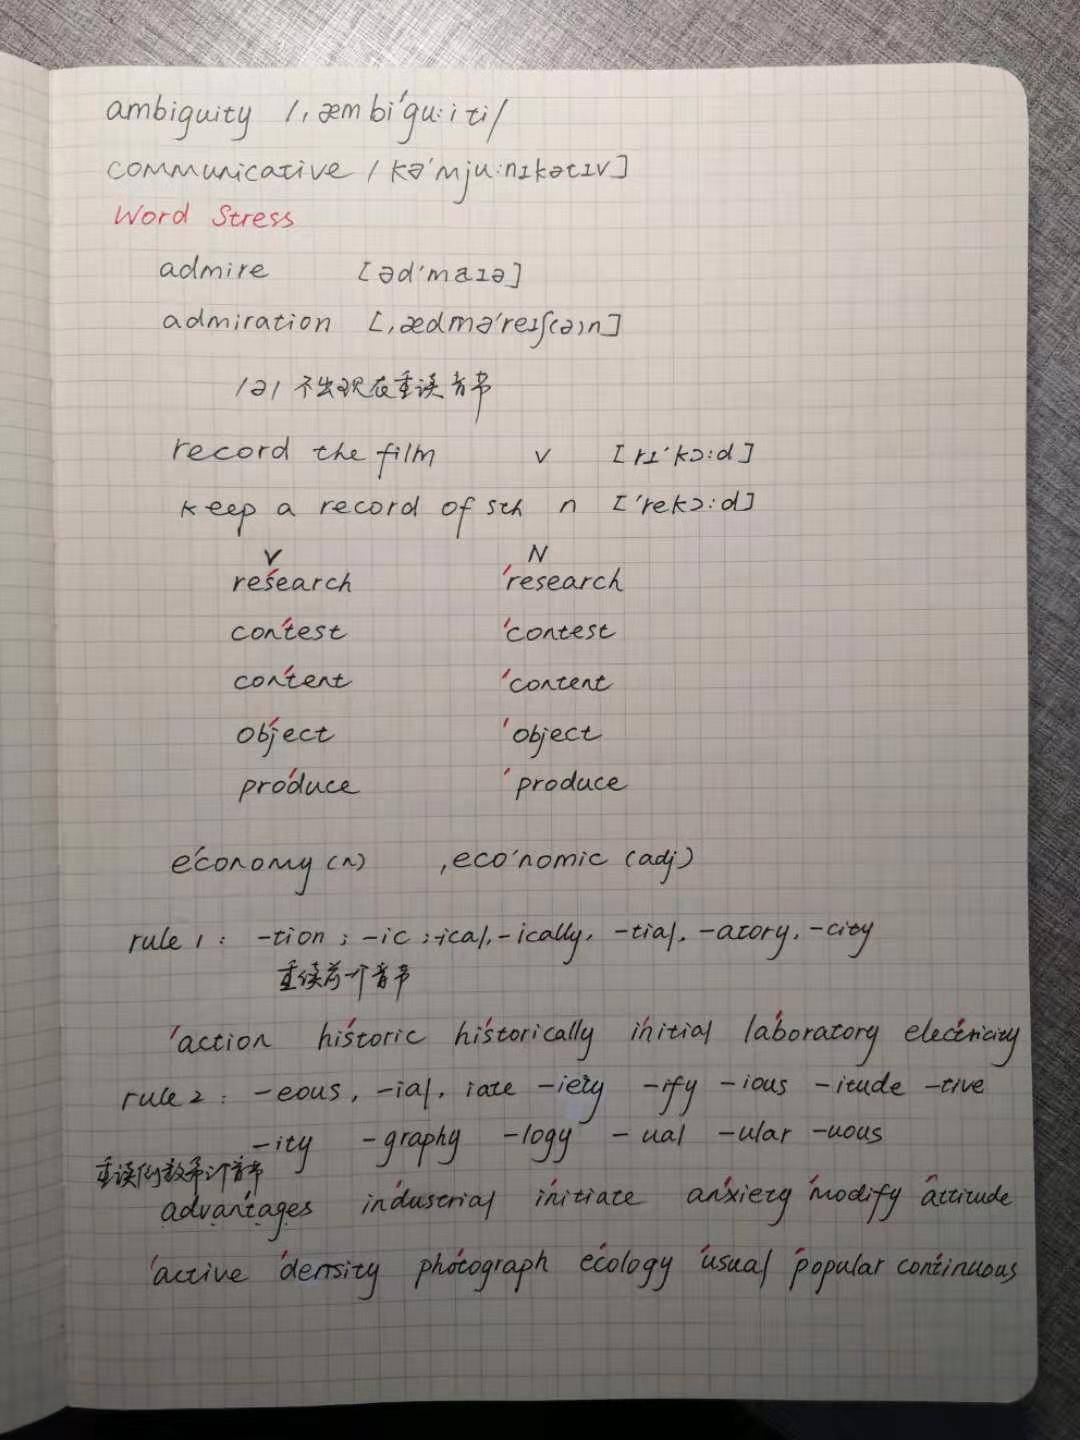 ambiguity /ˌæmbi'gu:iti/
communicative /kə'mju:nɪkətɪv]
Word Stress
admire [əd'maɪə]
admiration [ˌædmə'reɪʃ(ə)n]
/ə/ 不出现在重读音节
record the film v [rɪ'kɔ:d]
keep a record of sth n ['rekɔ:d]
V N
re'search 'research
con'test 'contest
con'tent 'content
ob'ject 'object
pro'duce 'produce
e'conomy (n) ˌeco'nomic (adj)
rule 1: -tion; -ic; -ical, -ically, -tial, -atory, -city
重读前一个音节
'action his'toric his'torically i'nitial la'boratory elec'tricity
rule 2: -eous, -ial, iate -iety -ify -ious -itude -tive
-ity -graphy -logy -ual -ular -uous
重读倒数第3个音节
advan'tages in'dustrial i'nitiate an'xiety 'modify 'attitude
'active 'density pho'tograph e'cology 'usual 'popular con'tinuous